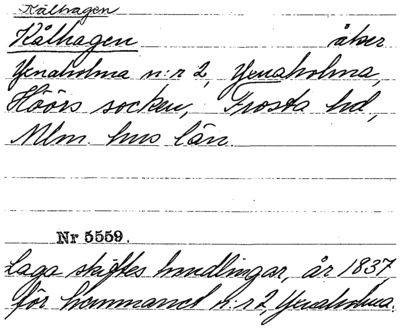 Kålhagen
Kålhagen åker
Yxnaholma n:r 2, Yxnaholma,
Höörs socken, Frosta hd,
Mlm. hus län.
Nr 5559.
Laga skiftes handlingar, år 1837,
för hemmanet n:r 2, Yxnaholma.